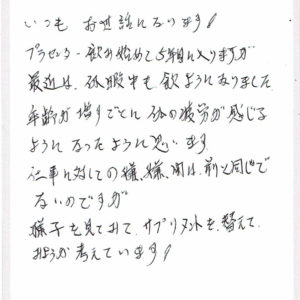 いつも お世話になります!
プラセンター飲み始めて5年目に入りますが
最近は、休暇中も 飲ようになりました
年齢が 増すごとに 体の疲労が感じる
ようになったように思います
仕事に対しての 前と同じで
ないのですが
様子を見てみて、サプリメントを、替えて、
みようか 考えています!